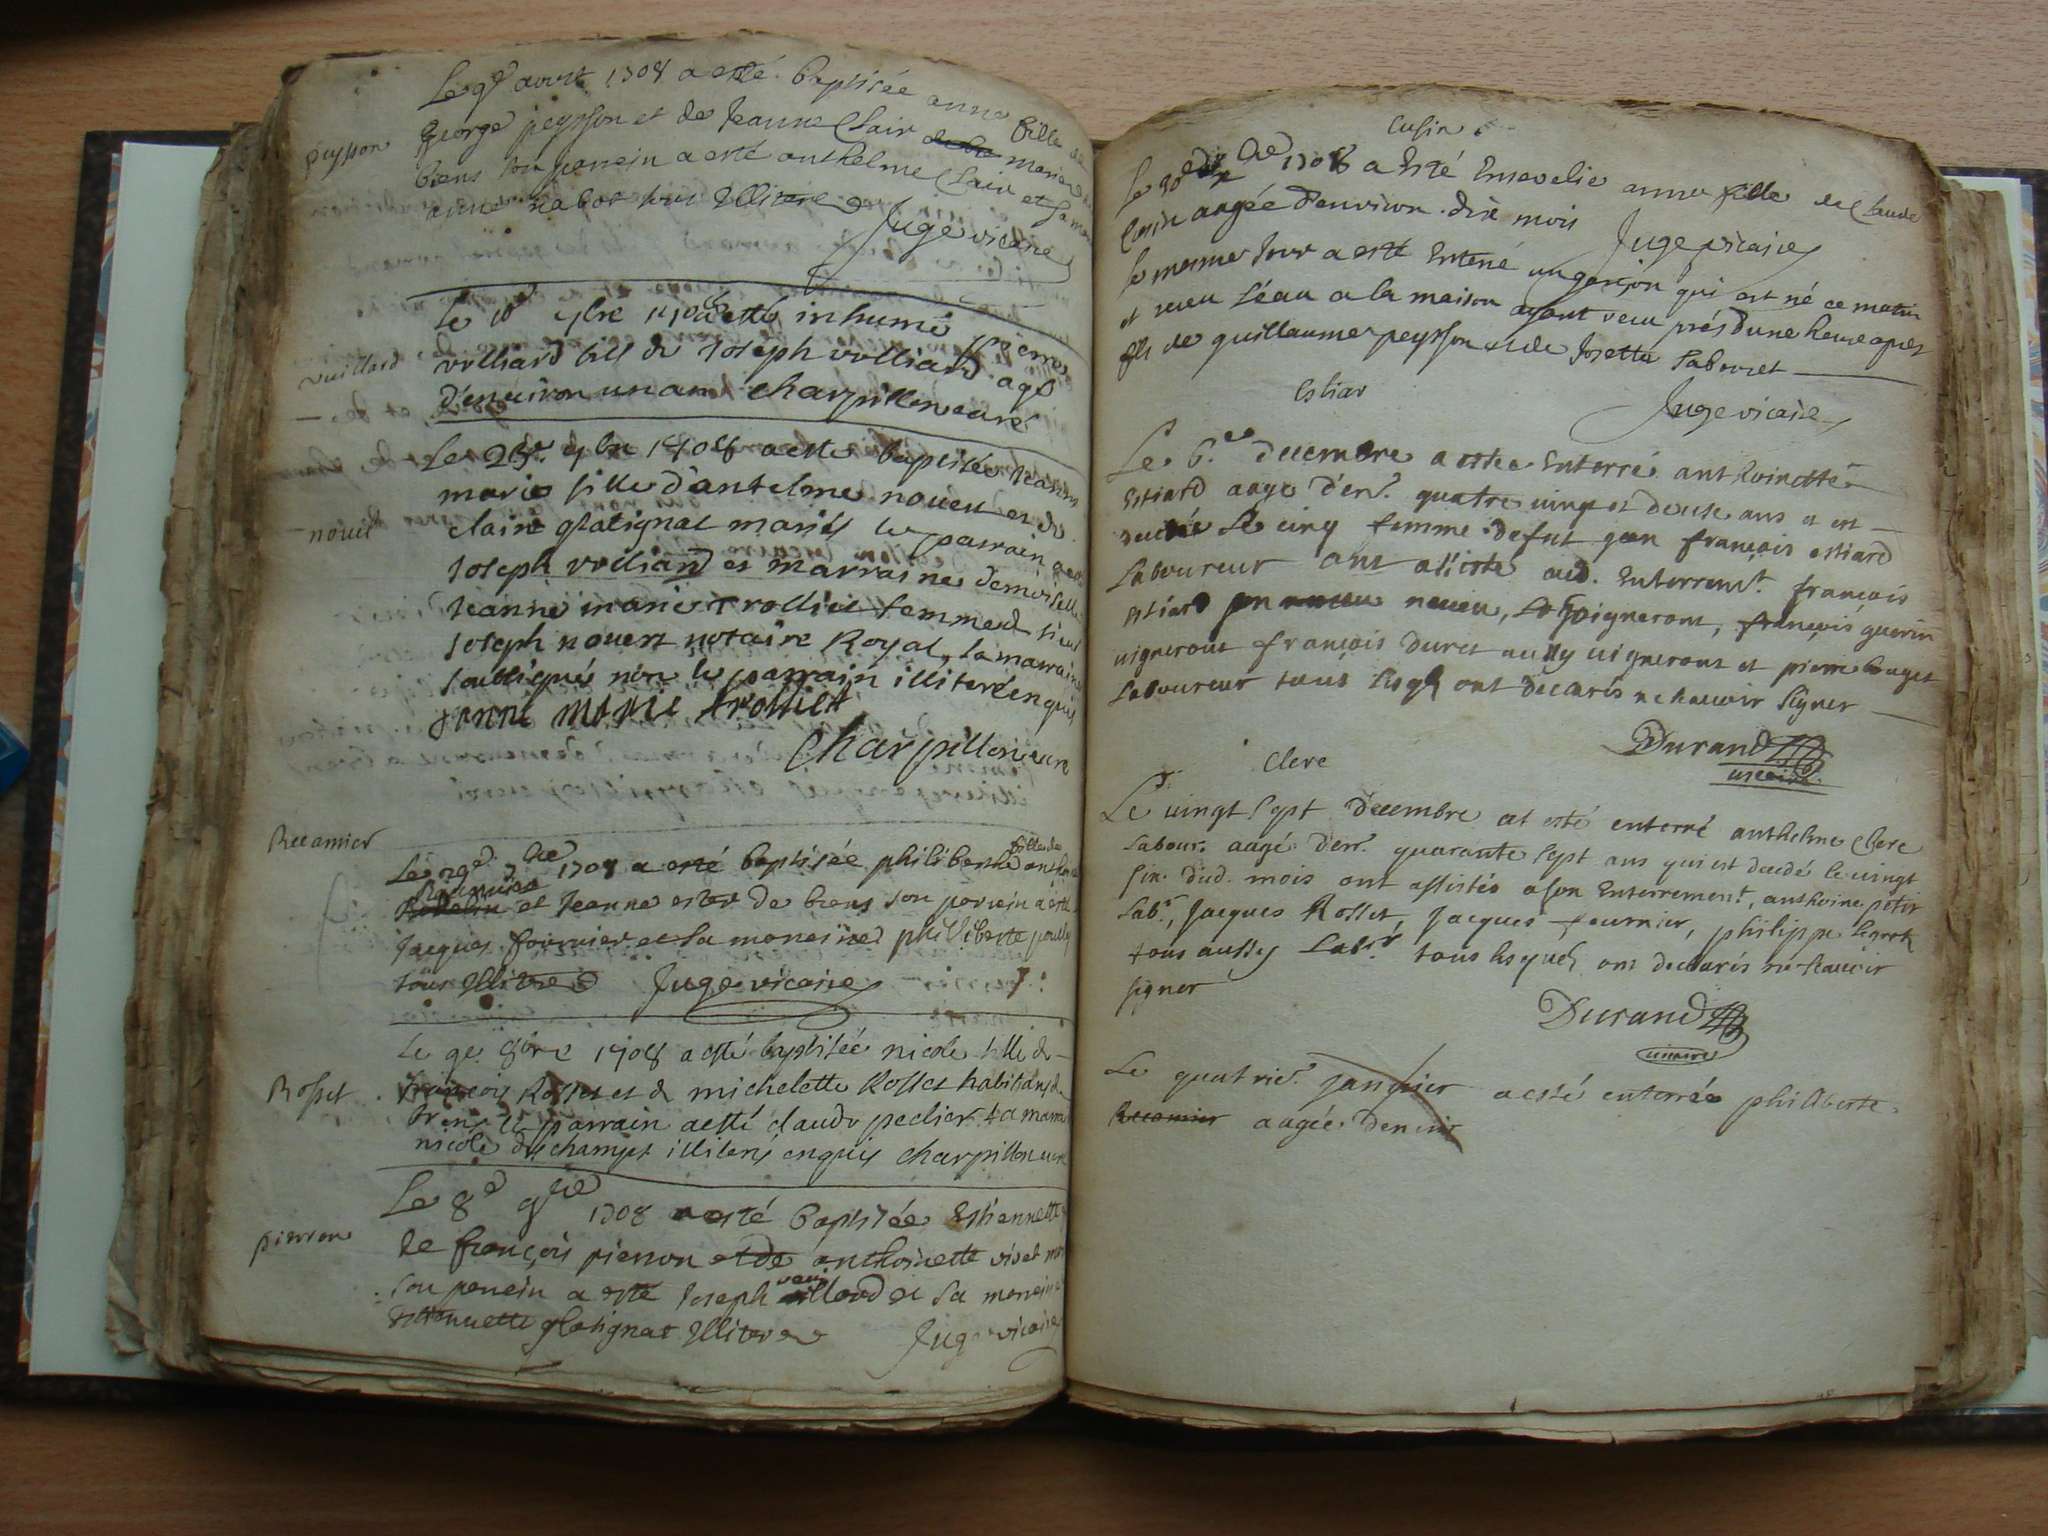 Le 9e aoust 1708 a esté baptisée anne fille de
peysson
George peysson et de Jeanne Clair mariés de
brens son parrein a esté anthelme Clair et sa mar
anne nabot tous Illiterés
Juge vicaire
Le 10e 7bre 1708 esté inhumé pierre
vuillard
volliard fill de Joseph volliard agé
d'environ un an Charpillon curé
Le 25e 7bre 1708 a esté baptisée Jeanne
marie fille d'antelme novert et de
novert
claire glatignat mariés le parrain a esté
Joseph volliand et marraine demoiselle
Jeanne marie Trolliet femme de sieur
Joseph novert notaire Royal, la marraine
soubsigné non le parrain illiteré enquis
janne marie trolliet
Charpillon curé
Recamier
Le 29e 7bre 1708 a esté baptisée philiberthe fille de
Recamier et Jeanne ester de brens son parrein a esté
Jacques fournier et sa mareine philiberte
tous Illiterés Juge vicaire
Le 9e 8bre 1708 a esté baptisée nicole fille de
Rosset
françois Rosset et de michelette Rosset habitans de
brens le parrain a esté claude peclier la marra
nicole deschamps illiterés enquis Charpillon curé
Le 8e 9bre 1708 a esté baptisée Estiennette
pierron
de françois pierron et de anthoinette vivet
son parrein a esté Joseph vuillard et sa mareine
Estiennette glatignat Illiterés Juge vicaire
Cusin
le 30e 1708 a esté Ensevelie anne fille de Claude
Cusin aagée d'environ dix mois Juge vicaire
le mesme Jour a esté Enterré un garçon qui est né ce matin
et receu l'eau a la maison ayant vecu prés d'une heure apres
fils de guillaume peysson et de Josette Labouret
Juge vicaire
Estiar
Le 6.e decembre a estée Enterré anthoinette
Estiard aagé d'env. quatre vingt et douse ans et est
decedé Le cinq femme de fut jean françois estiard
Laboureur ont assisté aud. Enterremt. françois
Estiard neveu, vigneront, françois guerin
vigneront françois Duret aussy vigneront et pierre
Laboureur tous lesqls ont declarés ne scavoir signer
Durand
vicaire
Clerc
Le vingt sept decembre at esté enterré anthelme Clerc
Labour. aagé d'env. quarante sept ans qui est decedé le vingt
six. dud. mois ont assistés a son Enterrement, anthoine petit
Labr, Jacques Rosset, Jacques fournier, philippe
tous aussy Labr. tous lesquels ont declarés ne scavoir
signer
Durand
vicaire
Le quatrie. janvier a esté enterrée philiberte
Recamier aagée d'envir